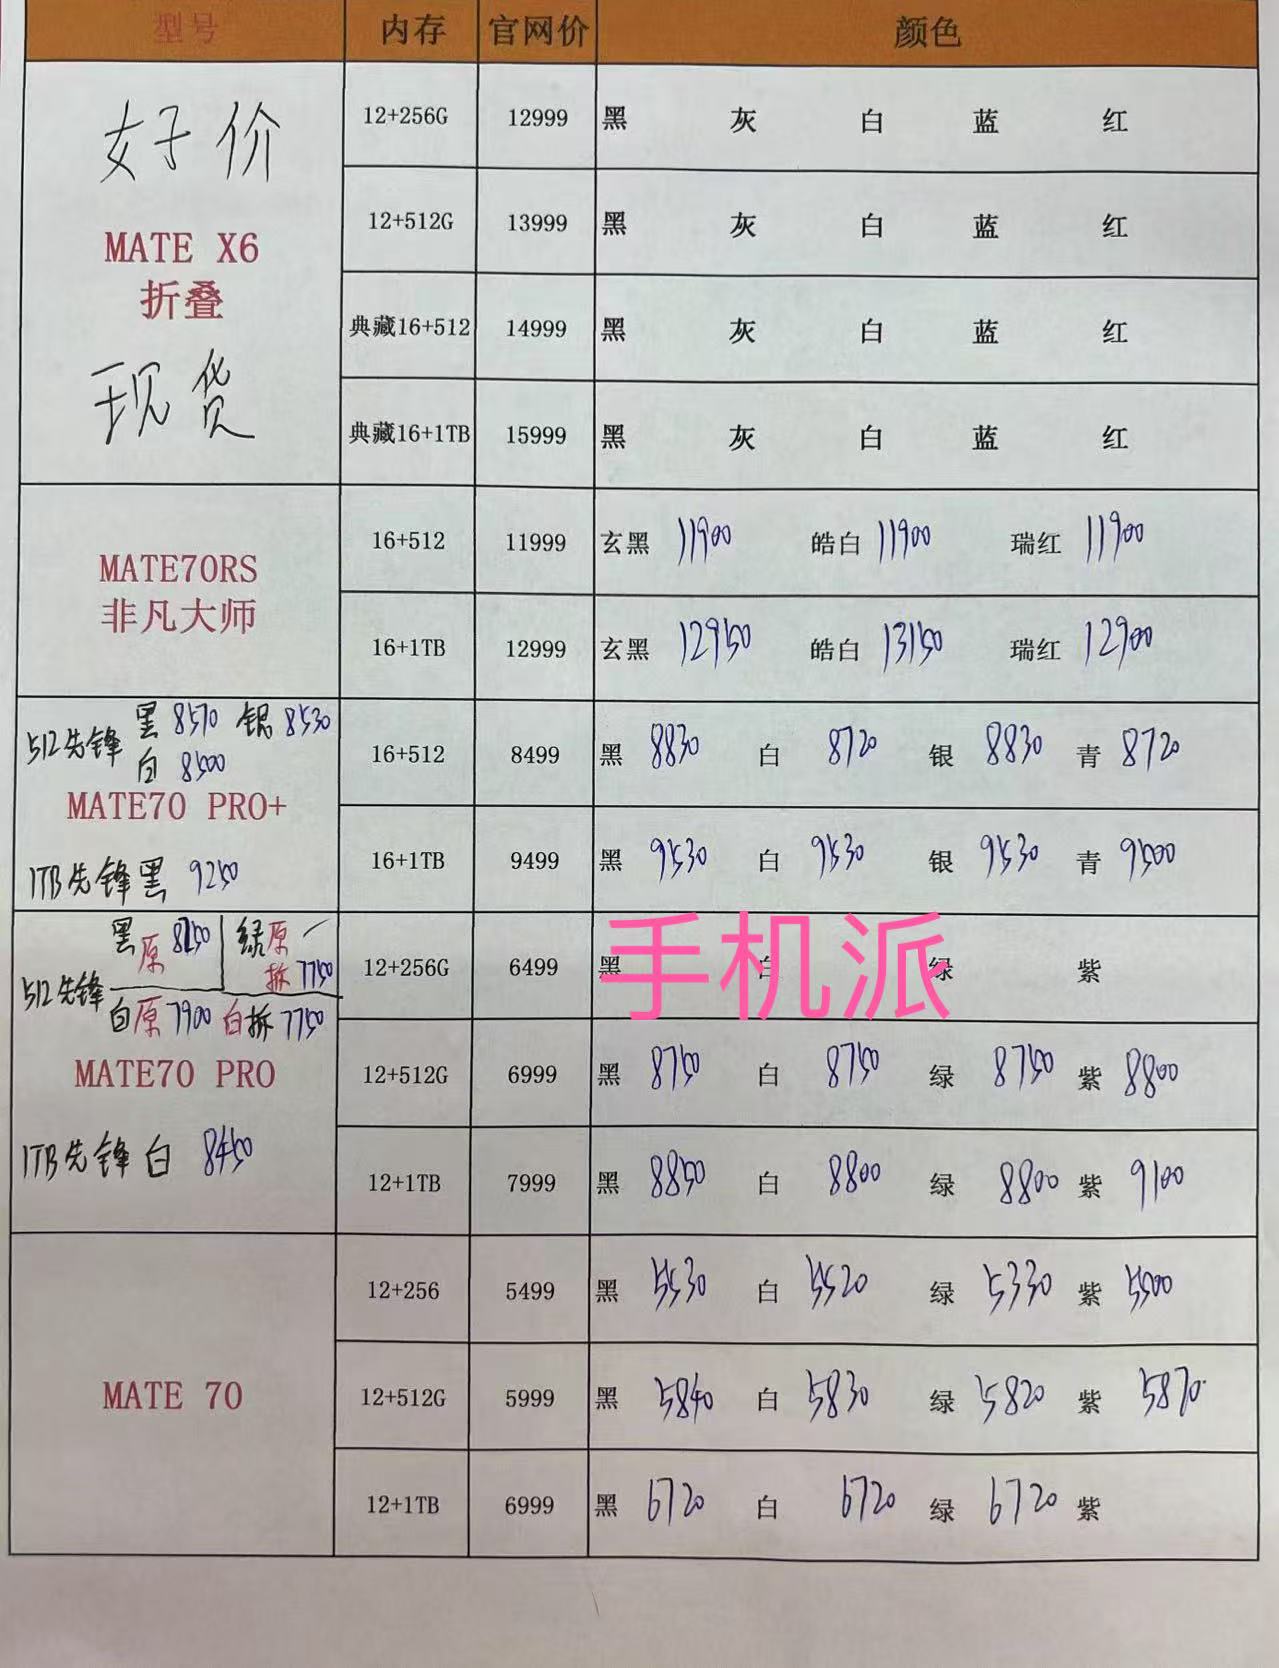 型号 内存 官网价 颜色
好价
MATE X6
折叠
现货
12+256G 12999 黑 灰 白 蓝 红
12+512G 13999 黑 灰 白 蓝 红
典藏16+512 14999 黑 灰 白 蓝 红
典藏16+1TB 15999 黑 灰 白 蓝 红
MATE70RS
非凡大师
16+512 11999 玄黑 11900 皓白 11900 瑞红 11900
16+1TB 12999 玄黑 12950 皓白 13150 瑞红 12900
512先锋 黑 8570 银 8530
白 8500
MATE70 PRO+
1TB先锋黑 9250
16+512 8499 黑 8830 白 8720 银 8830 青 8720
16+1TB 9499 黑 9530 白 9530 银 9530 青 9500
512先锋 黑原 绿原
拆 7750
白原 7900 白拆 7750
MATE70 PRO
1TB先锋 白 8450
12+256G 6499 黑 白 绿 紫
手机派
12+512G 6999 黑 8750 白 8750 绿 8750 紫 8800
12+1TB 7999 黑 8850 白 8800 绿 8800 紫 9100
MATE 70
12+256 5499 黑 5530 白 5520 绿 5330 紫 5500
12+512G 5999 黑 5840 白 5830 绿 5820 紫 5870
12+1TB 6999 黑 6720 白 6720 绿 6720 紫